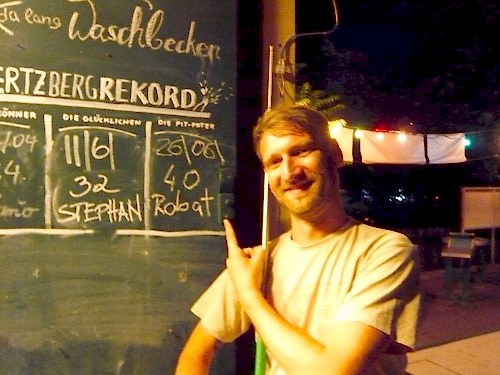 da lang Waschbecken
ERTZBERGREKORD
ÖNNER DIE GLÜCHLICHEN DIE PIT-PATER
/04 11/6/ 26/06/
4. 32 40
STEPHAN Robat